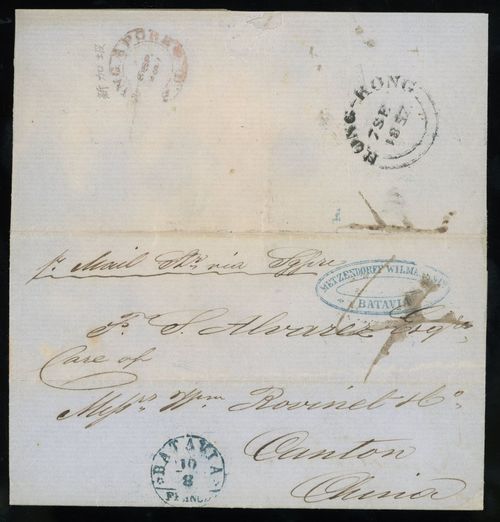 新加坡
HONG-KONG
7 SE
1857
pr. Mail Str. via S'pore
METZENDORFF WILMANS
BATAVIA
S. Alvarez Esqre
Care of
Messrs Wm. Rovinet & Co.
Canton
China
BATAVIA
10
8
FRANCO